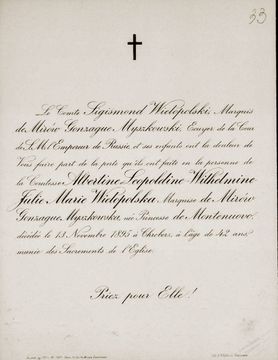 33
Le Comte Sigismond Wielopolski, Marquis
de Mirów Gonzague Myszkowski, Ecuyer de la Cour
de S. M. l'Empereur de Russie et ses enfants ont la douleur de
Vous faire part de la perte qu'ils ont faite en la personne de
la Comtesse Albertine Leopoldine Wilhelmine
Julie Marie Wielopolska Marquise de Mirów
Gonzague Myszkowska, née Princesse de Montenuovo,
décédée le 13 Novembre 1895 à Chroberz, à l'âge de 42 ans,
munie des Sacrements de l'Eglise.
Priez pour Elle!